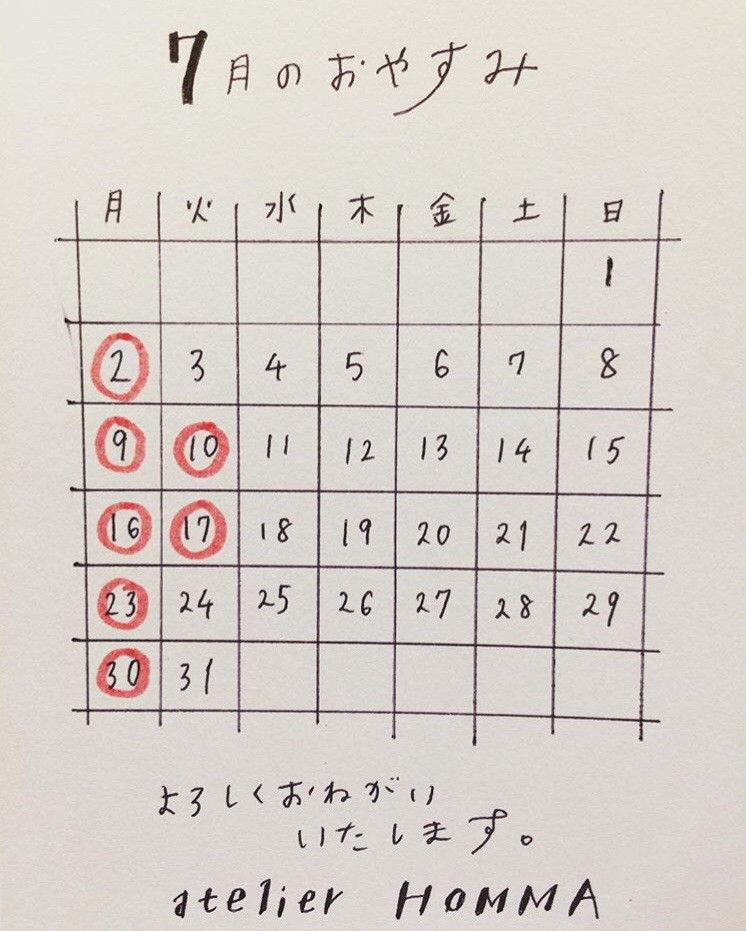 7月のおやすみ
月 火 水 木 金 土 日
1
2 3 4 5 6 7 8
9 10 11 12 13 14 15
16 17 18 19 20 21 22
23 24 25 26 27 28 29
30 31
よろしくおねがい
いたします。
atelier HOMMA